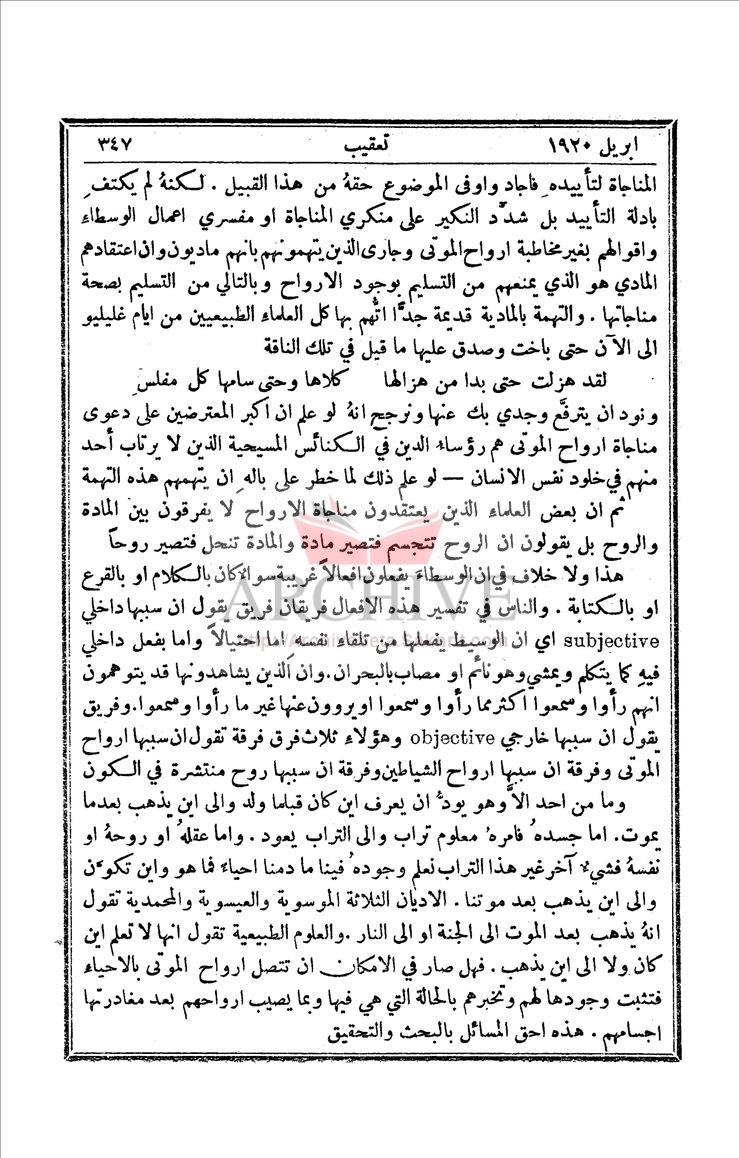 ابريل ١٩٢٠ تعقيب ٣٤٧
المناجاة لتأييدهِ فاجاد واوفى الموضوع حقهُ من هذا القبيل . لكنهُ لم يكتفِ
بادلة التأييد بل شدَّد النكير على منكري المناجاة او مفسري اعمال الوسطاء
واقوالهم بغير مخاطبة ارواح الموتى وجارى الذين يتهمونهم بانهم ماديون وان اعتقادهم
المادي هو الذي يمنعهم من التسليم بوجود الارواح وبالتالي من التسليم بصحة
مناجاتها . والتهمة بالمادية قديمة جدًّا اتُّهم بها كل العلماء الطبيعيين من ايام غليليو
الى الآن حتى باخت وصدق عليها ما قيل في تلك الناقة
لقد هزلت حتى بدا من هزالها كلاها وحتى سامها كل مفلسِ
ونود ان يترفَّع وجدي بك عنها ونرجح انهُ لو علم ان اكبر المعترضين على دعوى
مناجاة ارواح الموتى هم رؤساء الدين في الكنائس المسيحية الذين لا يرتاب أحد
منهم في خلود نفس الانسان — لو علم ذلك لما خطر على بالهِ ان يتهمهم هذه التهمة
ثم ان بعض العلماء الذين يعتقدون مناجاة الارواح لا يفرقون بين المادة
والروح بل يقولون ان الروح تتجسم فتصير مادة والمادة تنحل فتصير روحاً
هذا ولا خلاف في ان الوسطاء يفعلون افعالاً غريبة سواء كان بالكلام او بالقرع
او بالكتابة . والناس في تفسير هذه الافعال فريقان فريق يقول ان سببها داخلي
subjective اي ان الوسيط يفعلها من تلقاء نفسهِ اما احتيالاً واما بفعل داخلي
فيهِ كما يتكلم ويمشي وهو نائم او مصاب بالبحران . وان الذين يشاهدونها قد يتوهمون
انهم رأوا وسمعوا اكثر مما رأوا وسمعوا او يروون عنها غير ما رأوا وسمعوا . وفريق
يقول ان سببها خارجي objective وهؤلاء ثلاث فرق فرقة تقول ان سببها ارواح
الموتى وفرقة ان سببها ارواح الشياطين وفرقة ان سببها روح منتشرة في الكون
وما من احد الاَّ وهو يودُّ ان يعرف اين كان قبلما ولد والى اين يذهب بعدما
يموت . اما جسدهُ فامرهُ معلوم تراب والى التراب يعود . واما عقلهُ او روحهُ او
نفسهُ فشيءٌ آخر غير هذا التراب نعلم وجودهُ فينا ما دمنا احياء فما هو واين تكوَّن
والى اين يذهب بعد موتنا . الاديان الثلاثة الموسوية والعيسوية والمحمدية تقول
انهُ يذهب بعد الموت الى الجنة او الى النار . والعلوم الطبيعية تقول انها لا تعلم اين
كان ولا الى اين يذهب . فهل صار في الامكان ان تتصل ارواح الموتى بالاحياء
فتثبت وجودها لهم وتخبرهم بالحالة التي هي فيها وبما يصيب ارواحهم بعد مغادرتها
اجسامهم . هذه احق المسائل بالبحث والتحقيق
ARCHIVE